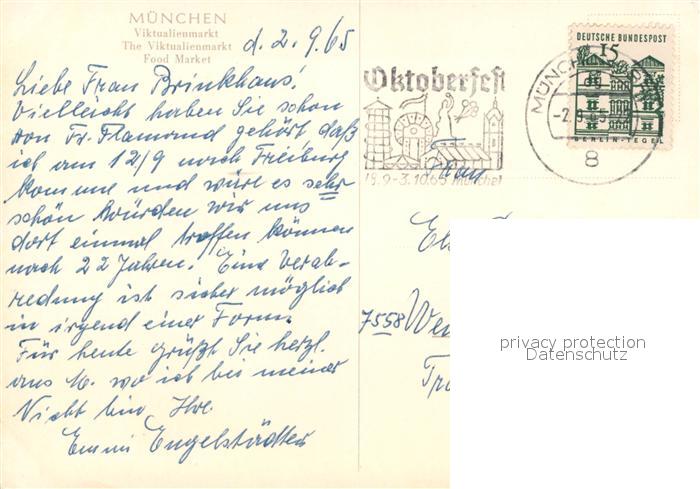 MÜNCHEN
Viktualienmarkt
The Viktualienmarkt
Food Market
d. 2.9.65
Liebe Frau Brinkhaus!
Vielleicht haben Sie schon
von Fr. Flamand gehört daß
ich am 12/9 nach Freiburg
komme und wäre es sehr
schön würden wir uns
dort einmal treffen können
nach 22 Jahren. Eine Verab-
redung ist sicher möglich
in irgend einer Form.
Für heute grüßt Sie herzl.
aus M. wo ich bei meiner
Nicht bin Ihre
Emmi Engelstädter
Oktoberfest
18.9-3.10.65 München
MÜNCHEN
-2.9.65
8
DEUTSCHE BUNDESPOST
15
BERLIN-TEGEL
Frau
7558
privacy protection
Datenschutz